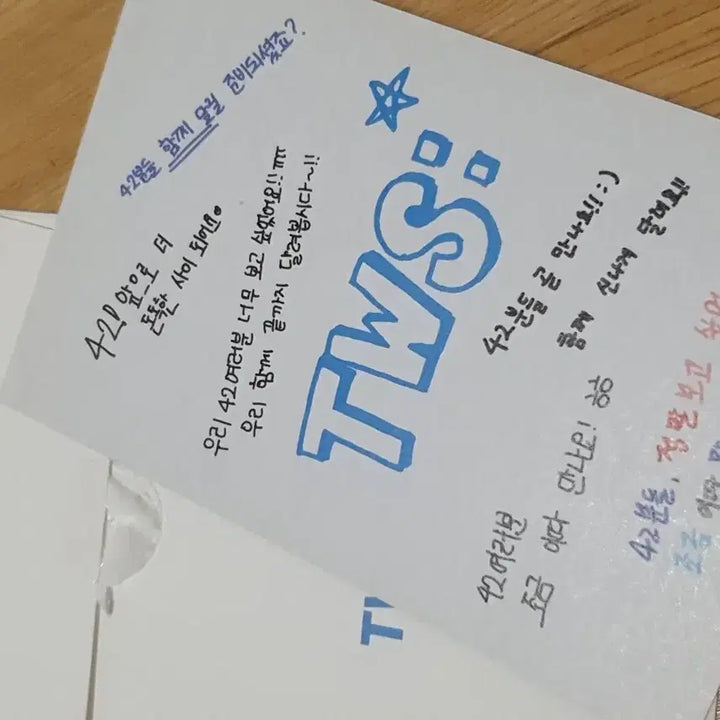 42분들 함께 달릴 준비되셨죠?
앞으로 더
돈독한 사이 되어요
우리 42여러분 너무 보고 싶었어요!! ㅠㅠ
우리 함께 끝까지 달려봅시다~!!
TWS:
42분들 곧 만나요!! :)
함께 신나게
42여러분
조금 이따 만나요! ㅎㅎ
42분들, 정말 보고
조금 이따
TW